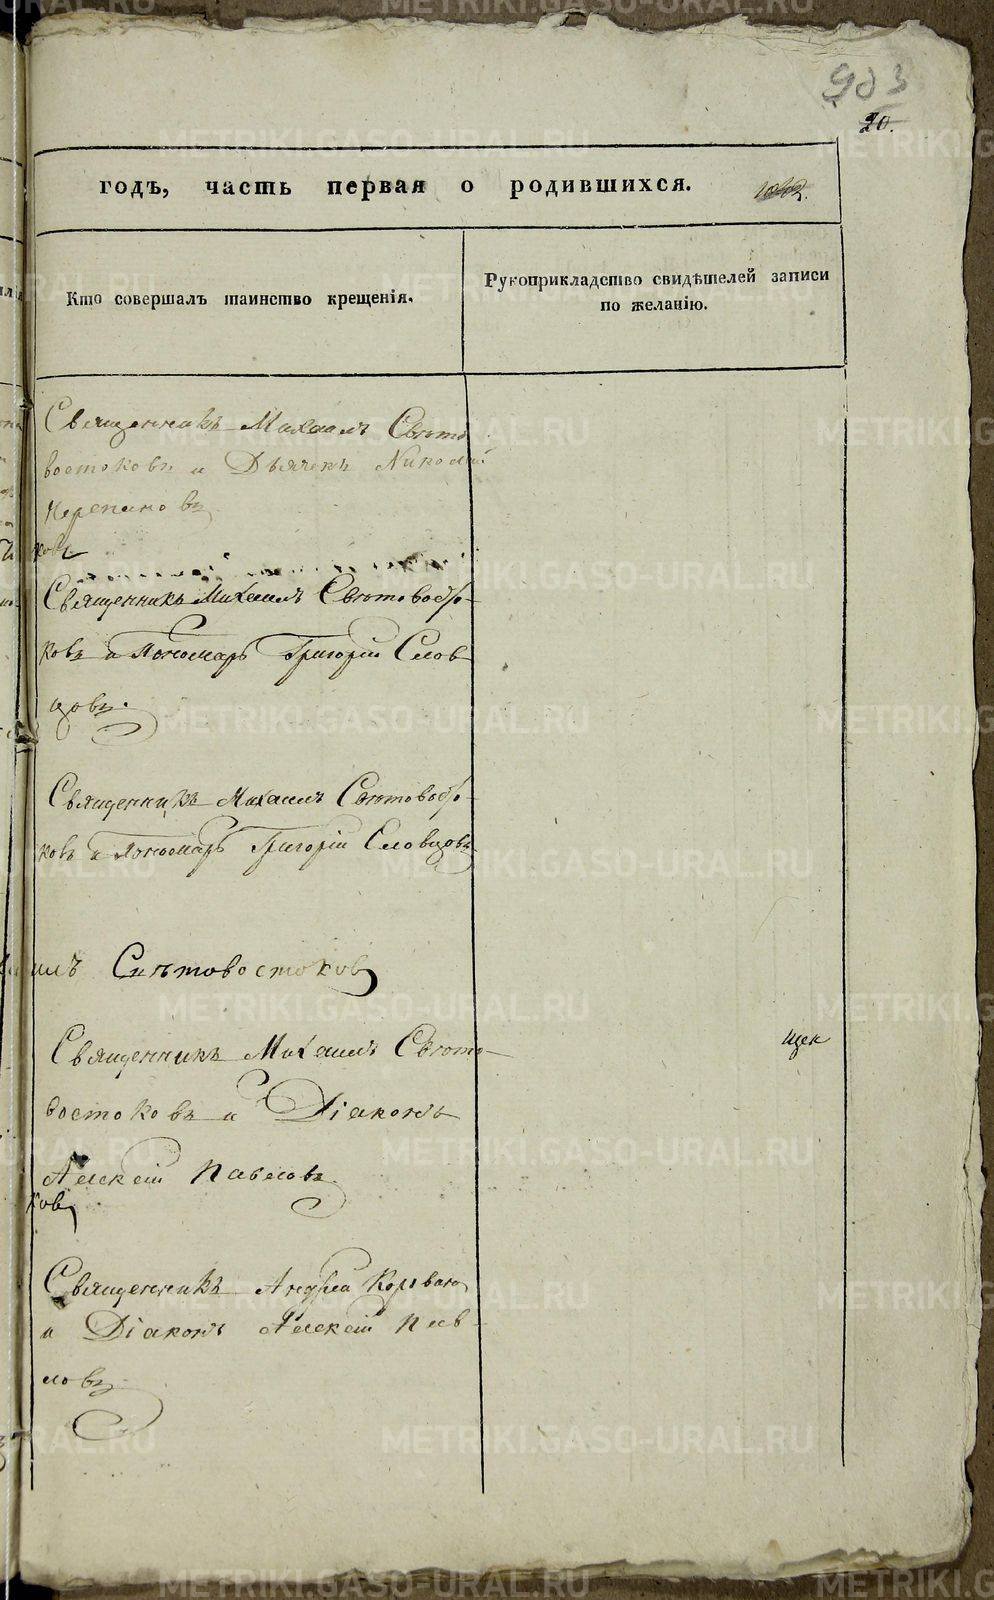 903
20.
годъ, часть первая о родившихся.
Кто совершалъ таинство крещенія.
Рукоприкладство свидѣтелей записи
по желанію.
Священникъ Михаилъ Свѣто
востоковъ и Дьячекъ Николай
Черепановъ
ковъ
Священникъ Михаилъ Свѣтовосто-
ковъ и Пономарь Григорій Слов
цовъ.
Священникъ Михаилъ Свѣтовосто-
ковъ и Пономарь Григорій Словцовъ
илъ Свѣтовостоков
Священникъ Михаилъ Свѣто-
востоковъ и Діаконъ
Алексѣй Павловъ
ков
Священникъ Андрей
и Діаконъ Алексѣй Пав-
ловъ
METRIKI.GASO-URAL.RU